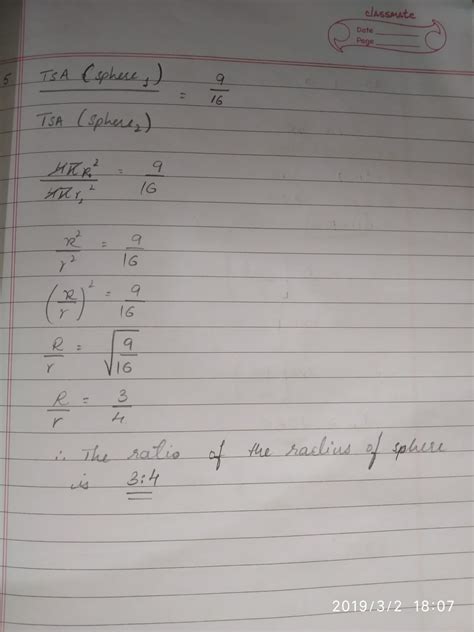 classmate
Date
Page
5 TSA (sphere₁) / TSA (sphere₂) = 9/16
4πR²/4πr₁² = 9/16
R²/r² = 9/16
(R/r)² = 9/16
R/r = √(9/16)
R/r = 3/4
∴ The ratio of the radius of sphere
is 3:4
2019/3/2 18:07